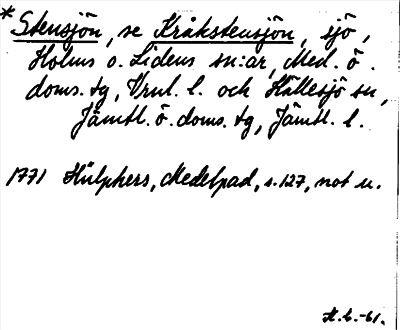 * Stensjön, se Kråkstensjön, sjö,
Holms o. Lidens sn:ar, Med. ö.
doms. tg, Vrnl. l. och Hällesjö sn,
Jämtl. ö. doms. tg, Jämtl. l.
1771 Hülphers, Medelpad, s. 127, not u.
H.b.-61.